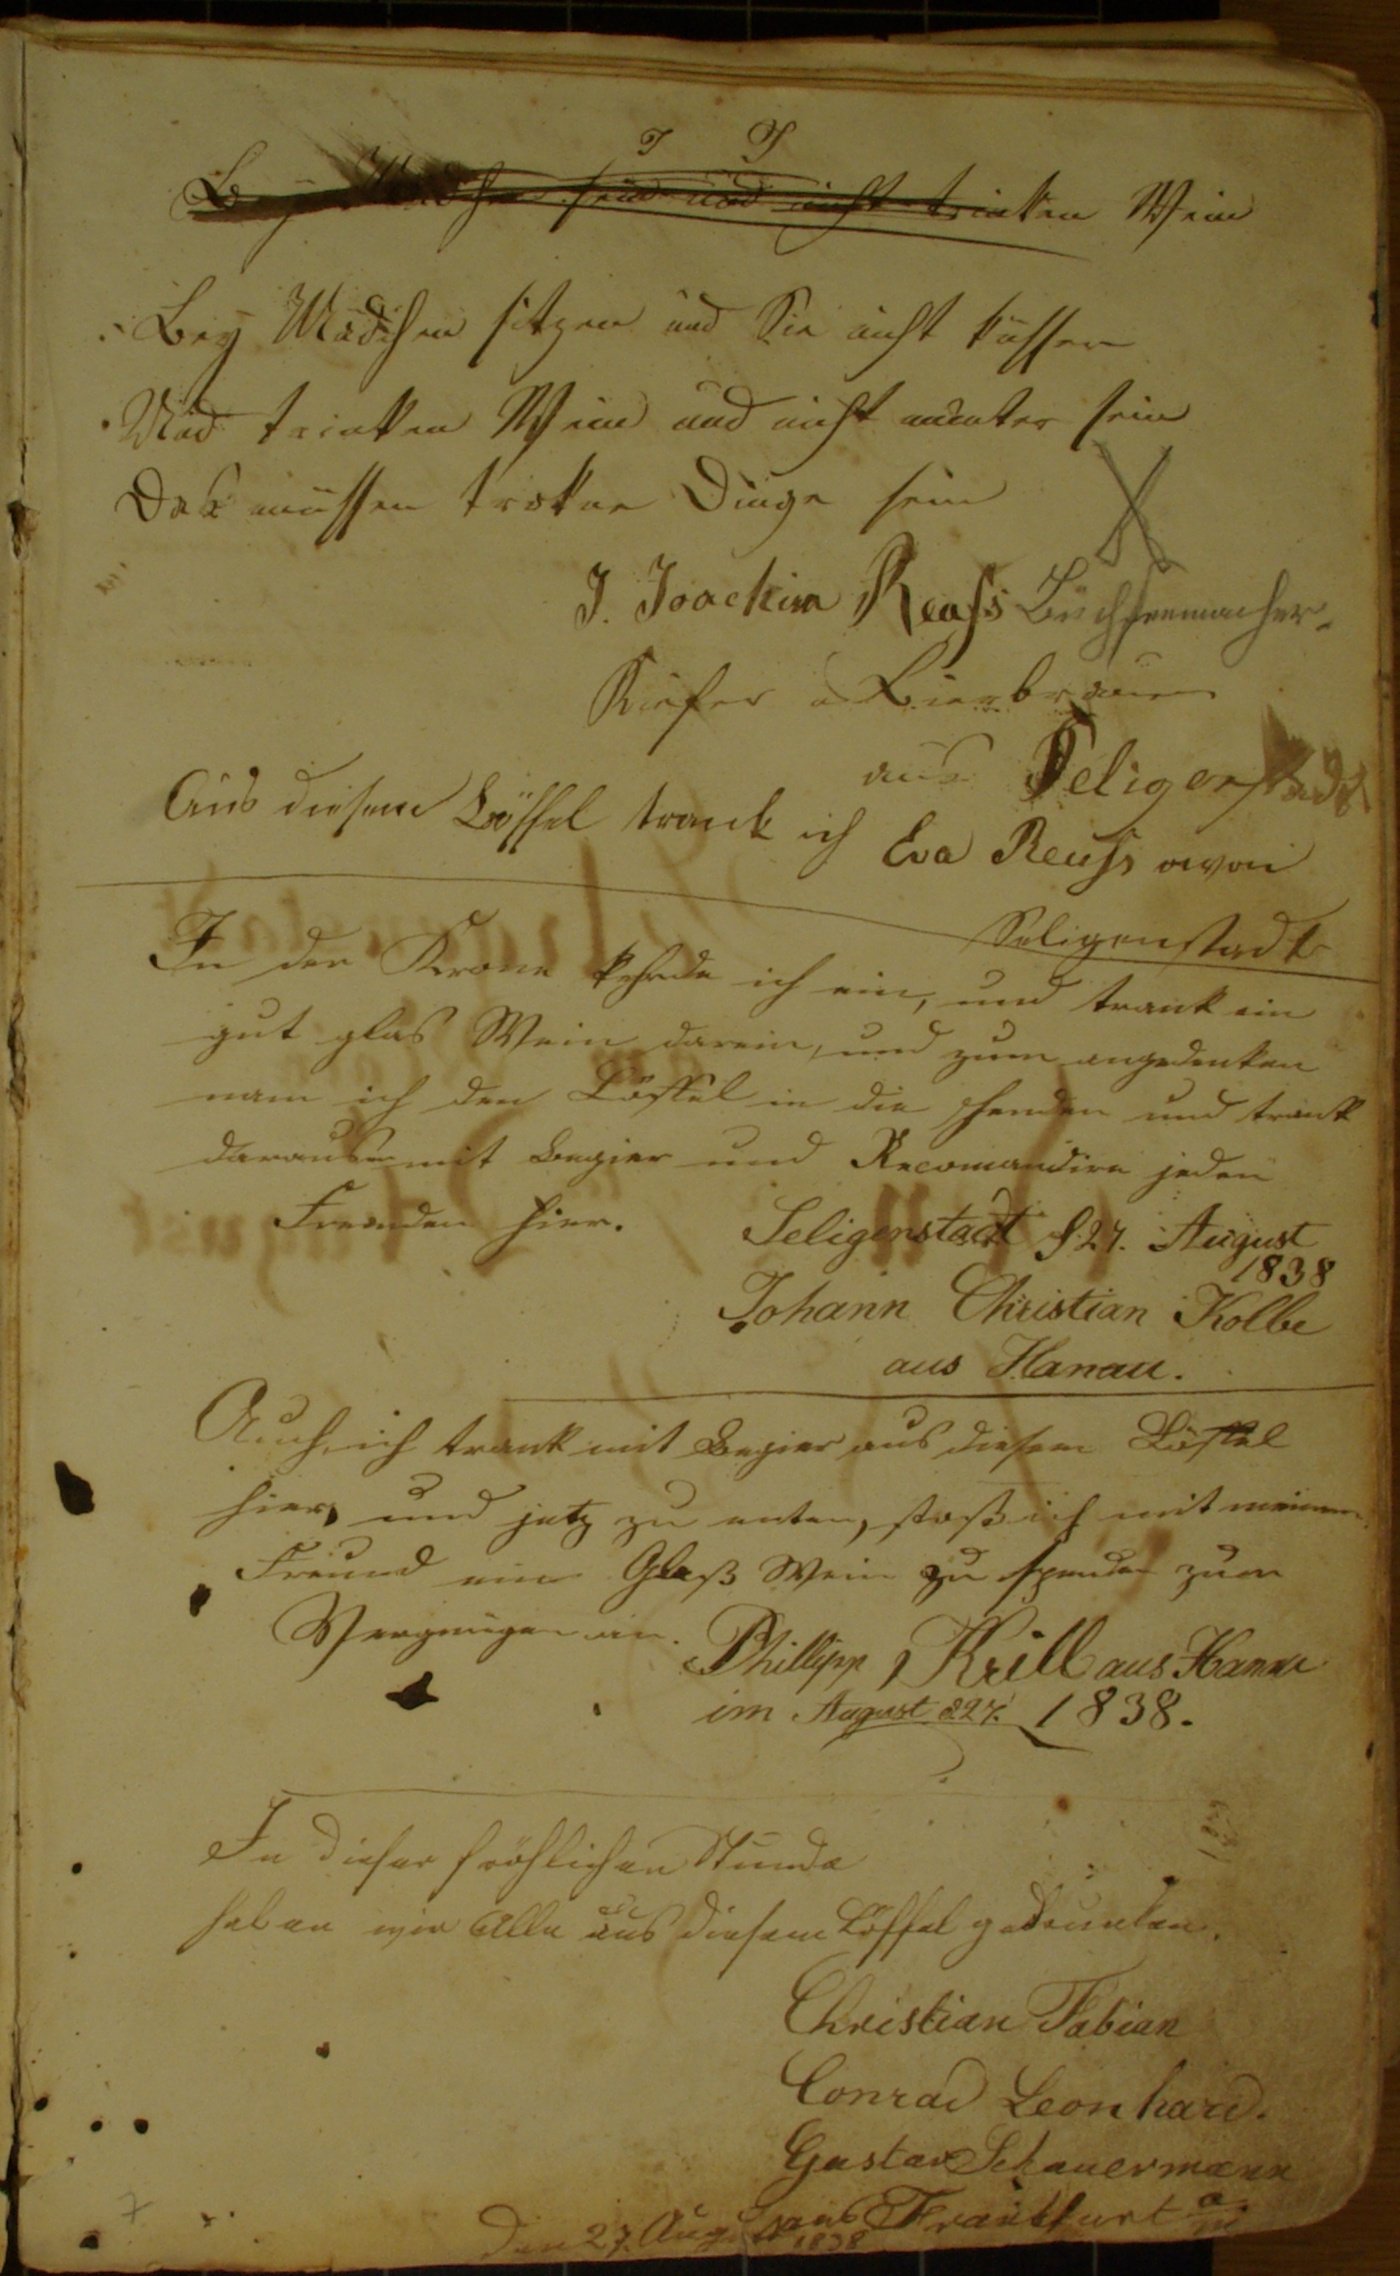 Bey Mädchen sein und nicht trinken Wein
Bey Mädchen sitzen und Sie nicht küssen
Und trinken Wein und nicht munter sein
Das müssen trokne Dinge sein
J. Joachim Reuß Büchsenmacher
Kiefer u Bierbrauer
aus Seligenstadt
Aus diesem Löffel trank ich
Eva Reuß
Seligenstadt
In der Krone kehrde ich ein, und trank ein
gut glas Wein darein, und zum angedenken
nam ich den Löffel in die henden und trank
daraus mit Begier und Recomandire jeden
Fremden hier.
Seligenstadt d 27. August
1838
Johann Christian Kolbe
aus Hanau.
Auch ich trank mit Begier aus diesem Löffel
hier, und jetz zu enten, stoß ich mit meinem
Freund ein Glaß Wein zu spenden zum
Vergnügen an.
Phillipp Krill aus Hanau
im August d 27. 1838.
In dieser fröhlichen Stunde
haben wir Alle aus diesem Löffel gedrunken.
Christian Fabian
Conrad Leonhard.
Gustav Schauermann
aus Frankfurt a/m
Den 27. August 1838
7